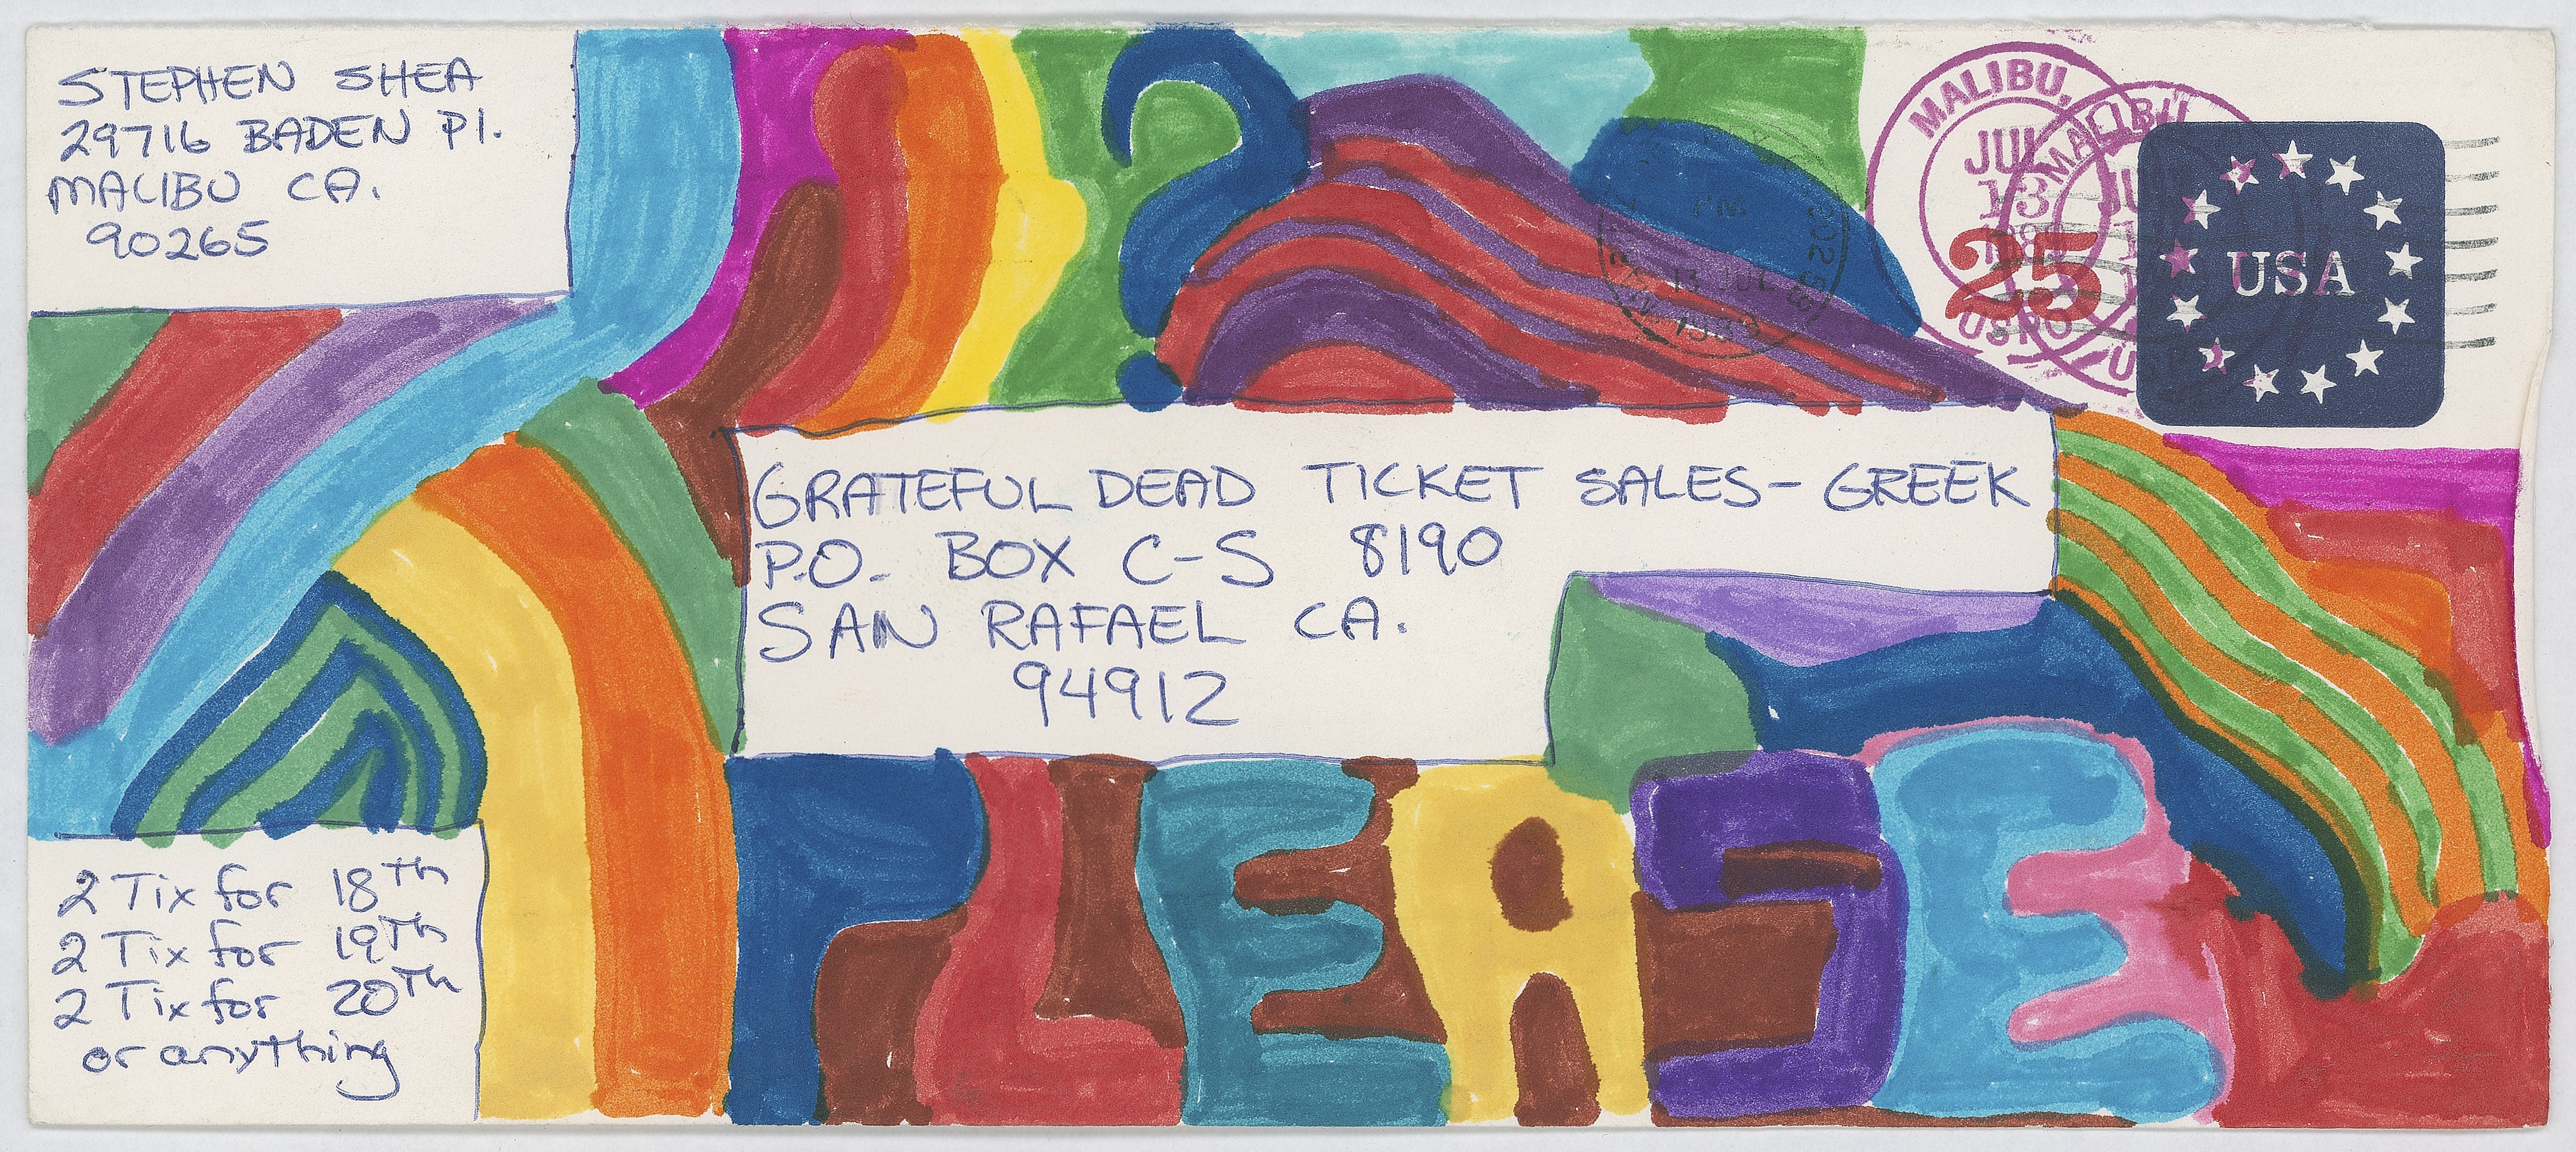 STEPHEN SHEA
29716 BADEN Pl.
MALIBU CA.
90265
MALIBU,
JUL
13
USPO
MALIBU
PM
13 JUL
25
USA
GRATEFUL DEAD TICKET SALES- GREEK
P.O. BOX C-S 8190
SAN RAFAEL CA.
94912
2 Tix for 18Th
2 Tix for 19Th
2 Tix for 20Th
or anything
PLEASE